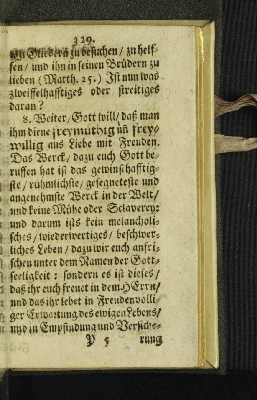 329.
in Gliedern zu besuchen / zu helf-
fen / und ihn in seinen Brüdern zu
lieben (Matth. 25.) Ist nun was
zweiffelhafftiges oder streitiges
daran?
8. Weiter / Gott will / daß man
ihm diene freymüthig uñ frey-
willig aus Liebe mit Freuden.
Das Werck / dazu euch Gott be-
ruffen hat ist das gewinshafftig-
ste / rühmlichste / gesegneteste und
angenehmste Werck in der Welt /
und keine Mühe oder Sclaverey:
und darum ists kein melancholi-
sches / wiederwertiges / beschwer-
liches Leben / dazu wir euch anfri-
schen unter dem Namen der Gott-
seeligkeit: sondern es ist dieses /
daß ihr euch freuet in dem HErrn /
und das ihr lebet in Freudenvolli-
ger Erwartung des ewigen Lebens /
und in Empfindung und Versiche-
P 5 rung